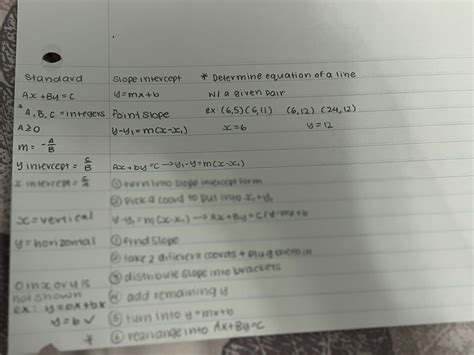 Standard
Ax + By = C
* A, B, C = integers
A ≥ 0
m = -A/B
y intercept = C/B
x intercept = C/A
x = vertical
y = horizontal
0 in x or y is
not shown
ex: y = 0x + bx
y = b ✓
*
Slope intercept
y = mx + b
Point slope
y - y₁ = m(x - x₁)
* Determine equation of a line
w/ a given pair
ex (6,5)(6,11) (6,12)(24,12)
x = 6 y = 12
Ax + by = C → y₁ - y = m(x - x₁)
① turn into slope intercept form
② pick a coord to put into x₁ + y₁
y - y₁ = m(x - x₁) → Ax + By = C / y = mx + b
① find slope
② take 2 different coords + plug them in
③ distribute slope into brackets
④ add remaining y
⑤ turn into y = mx + b
⑥ rearange into Ax + By = C